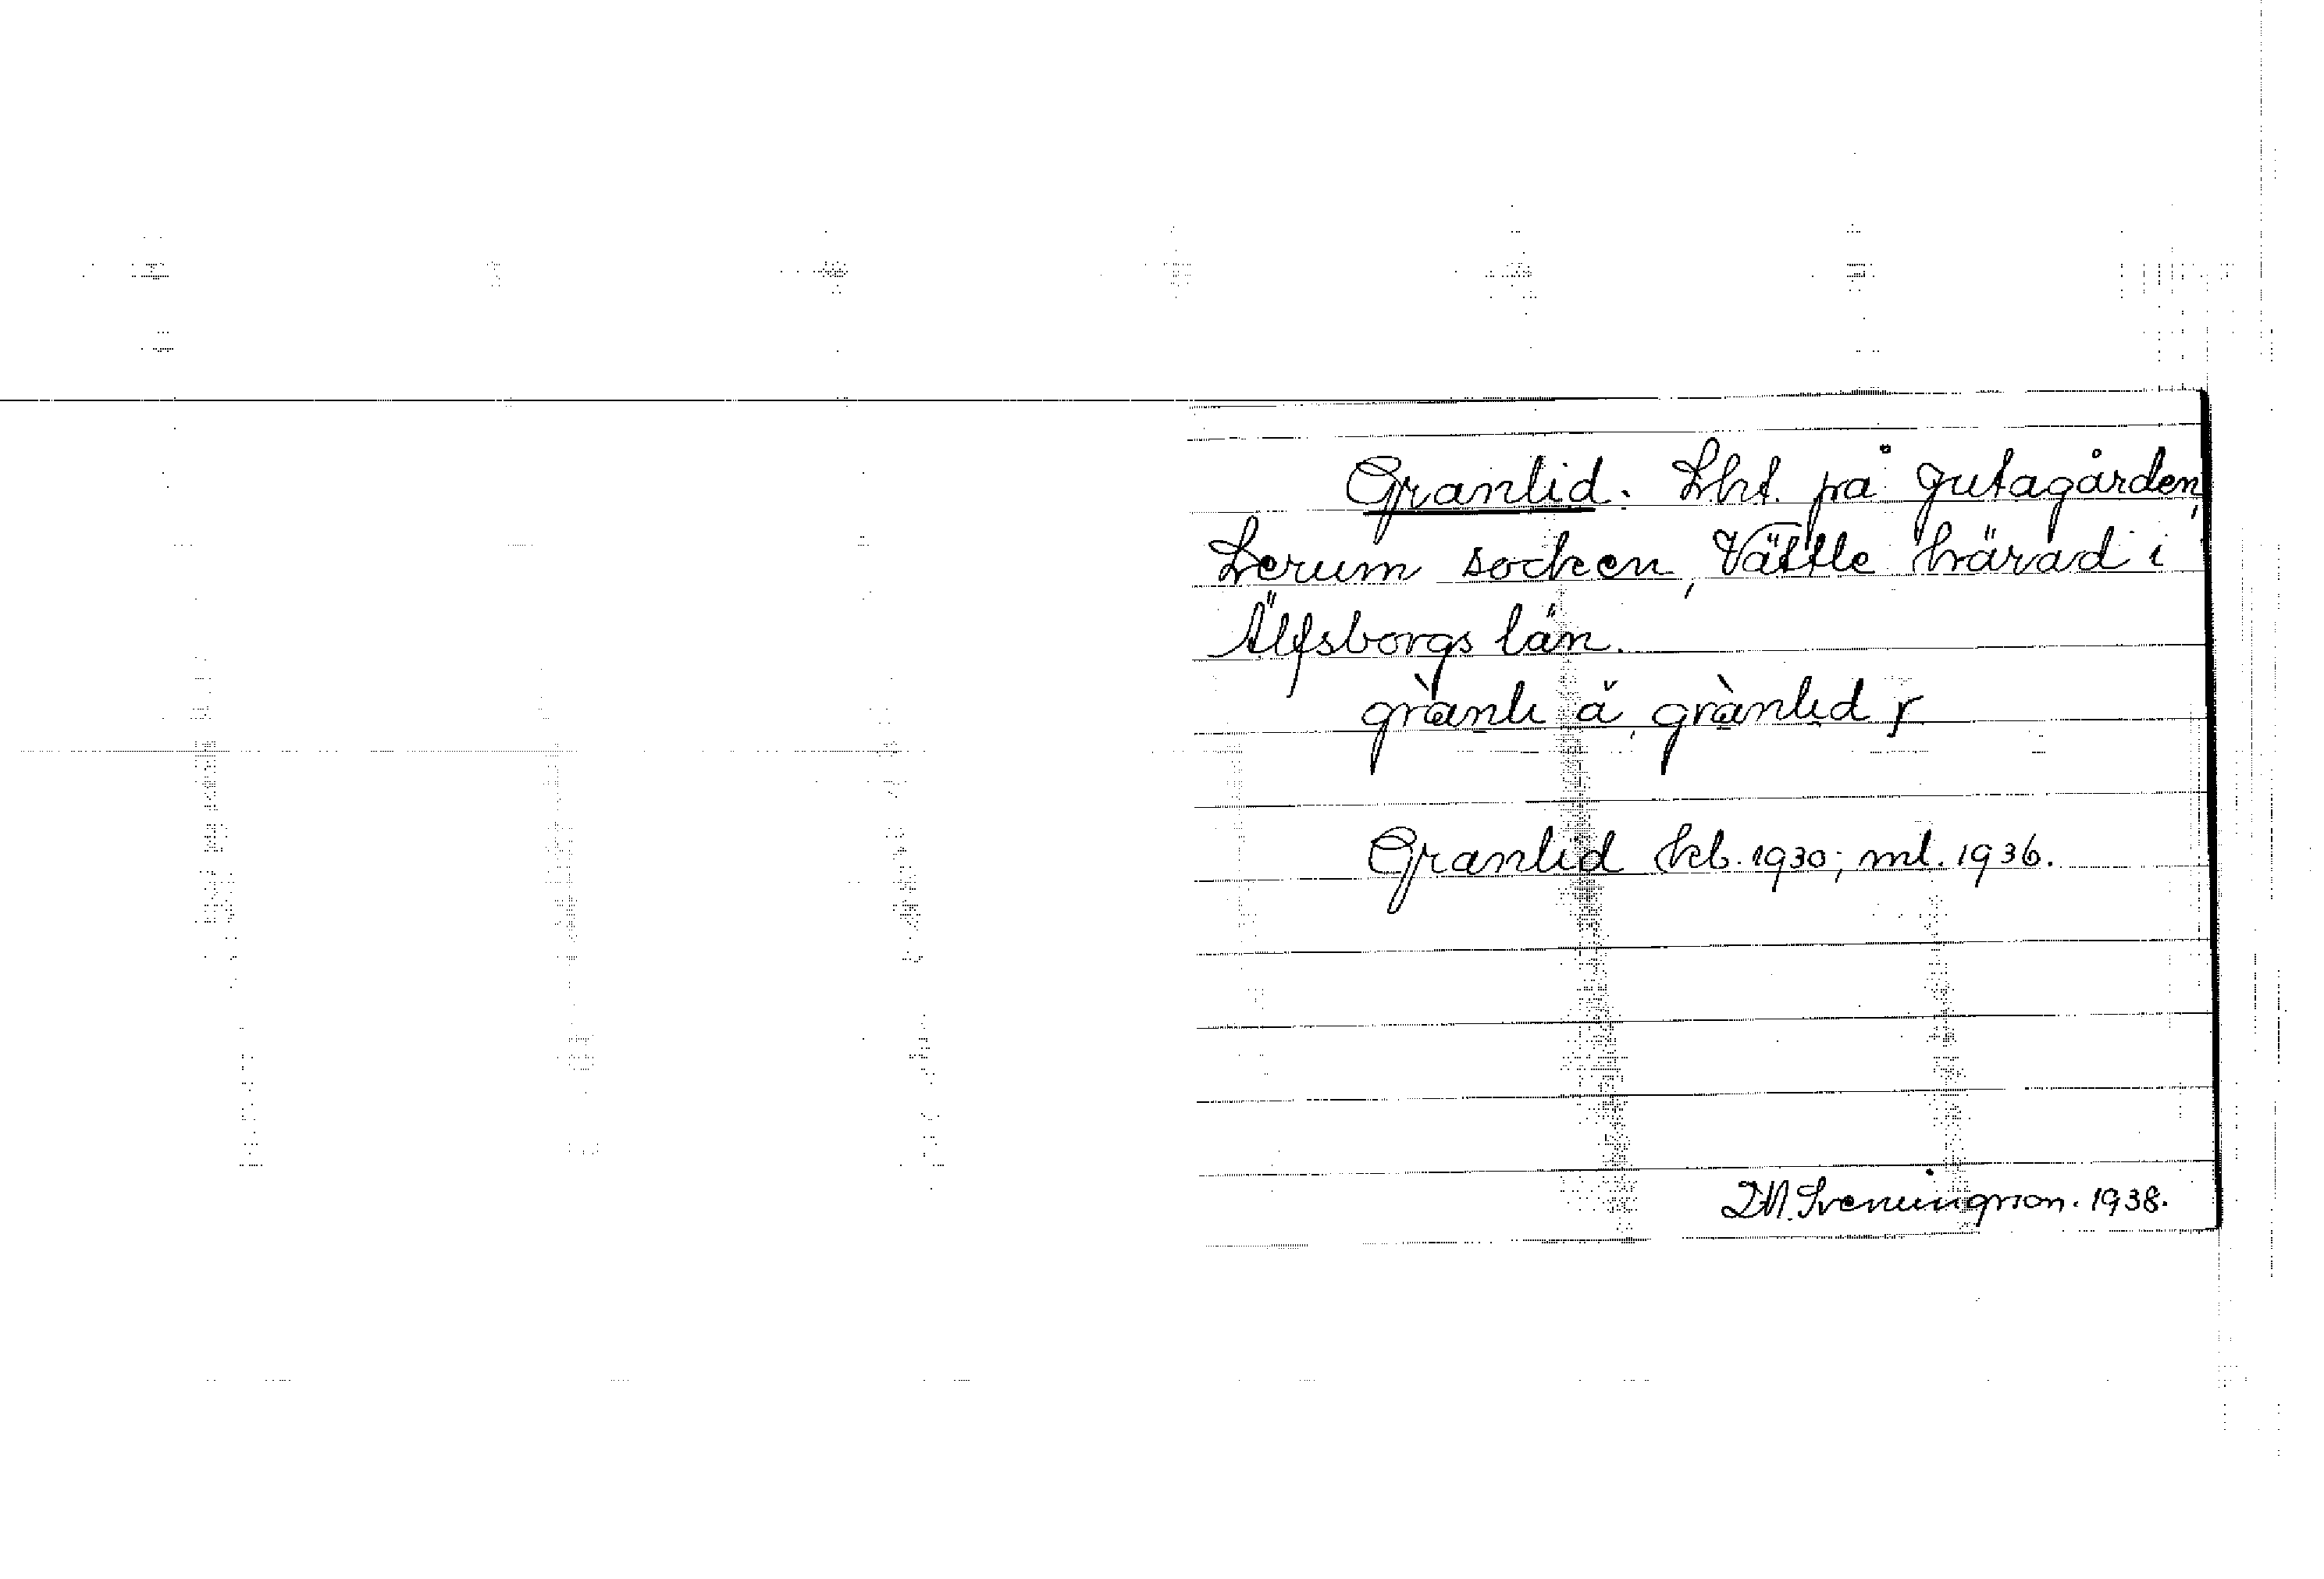 Granlid. Lht. på Jutagården,
Lerum socken, Vättle härad i
Älfsborgs län.
grànlı å, grànlıd r
Granlid kb. 1930; ml. 1936.
D.N. Svenningsson. 1938.